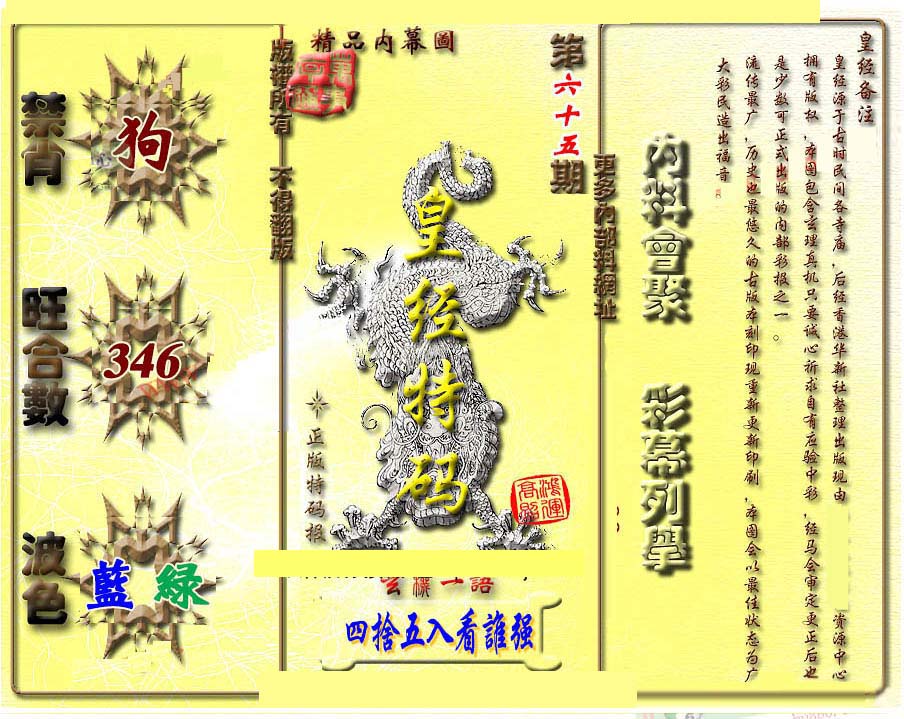 皇经备注
皇经源于古时民间各寺庙,后经香港华新社整理出版现由 资源中心
拥有版权,本图包含玄理真机只要诚心祈求自有应验中彩,经马会审定更正后也
是少数可正式出版的内部彩报之一。
流传最广,历史也最悠久的古版本刻印现重新更新印刷,本图会以最佳状态为广
大彩民造出福音
内料會聚
彩幕列舉
更多內部料網址
第六十五期
精品内幕圖
皇经特码
正版特码报
鴻運高照
玄機一語
四捨五入看誰强
版權所有 不得翻版
禁肖
狗
旺合數
346
波色
藍 綠